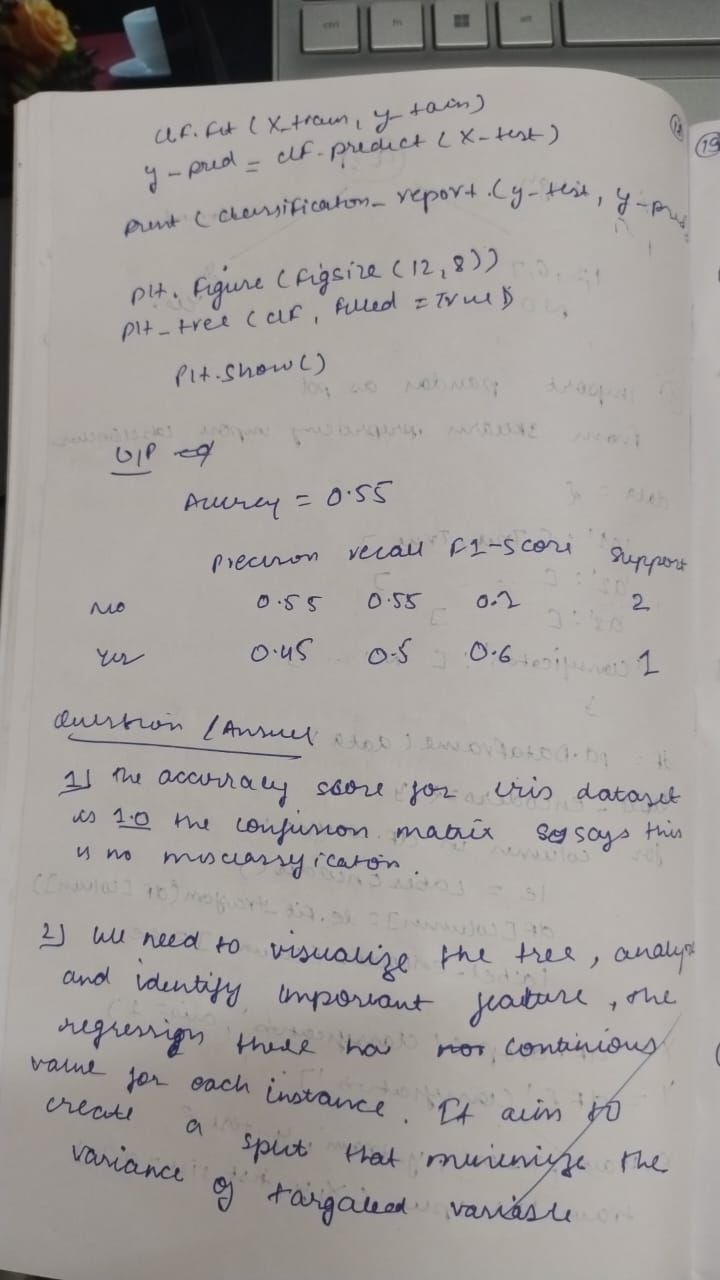 clf.fit (X_train, y_tain)
y-pred = clf.predict (X-test)
print (classification_ report.(y-test, y-pre
plt. figure (figsize (12,8))
plt-tree (clf, filled = True)
plt.show()
O/P
Accurey = 0.55
Precision recall F1-score support
No 0.55 0.55 0.2 2
Yes 0.45 0.5 0.6 1
Question / Answer
1) The accuracy score for iris dataset
is 1.0 the confusion matrix so says this
is no misclassification.
2) We need to visualize the tree, analyze
and identify important feature, the
regression these has not continious
value for each instance. It aim to
create a split that minimize the
variance of targated variable
18
19